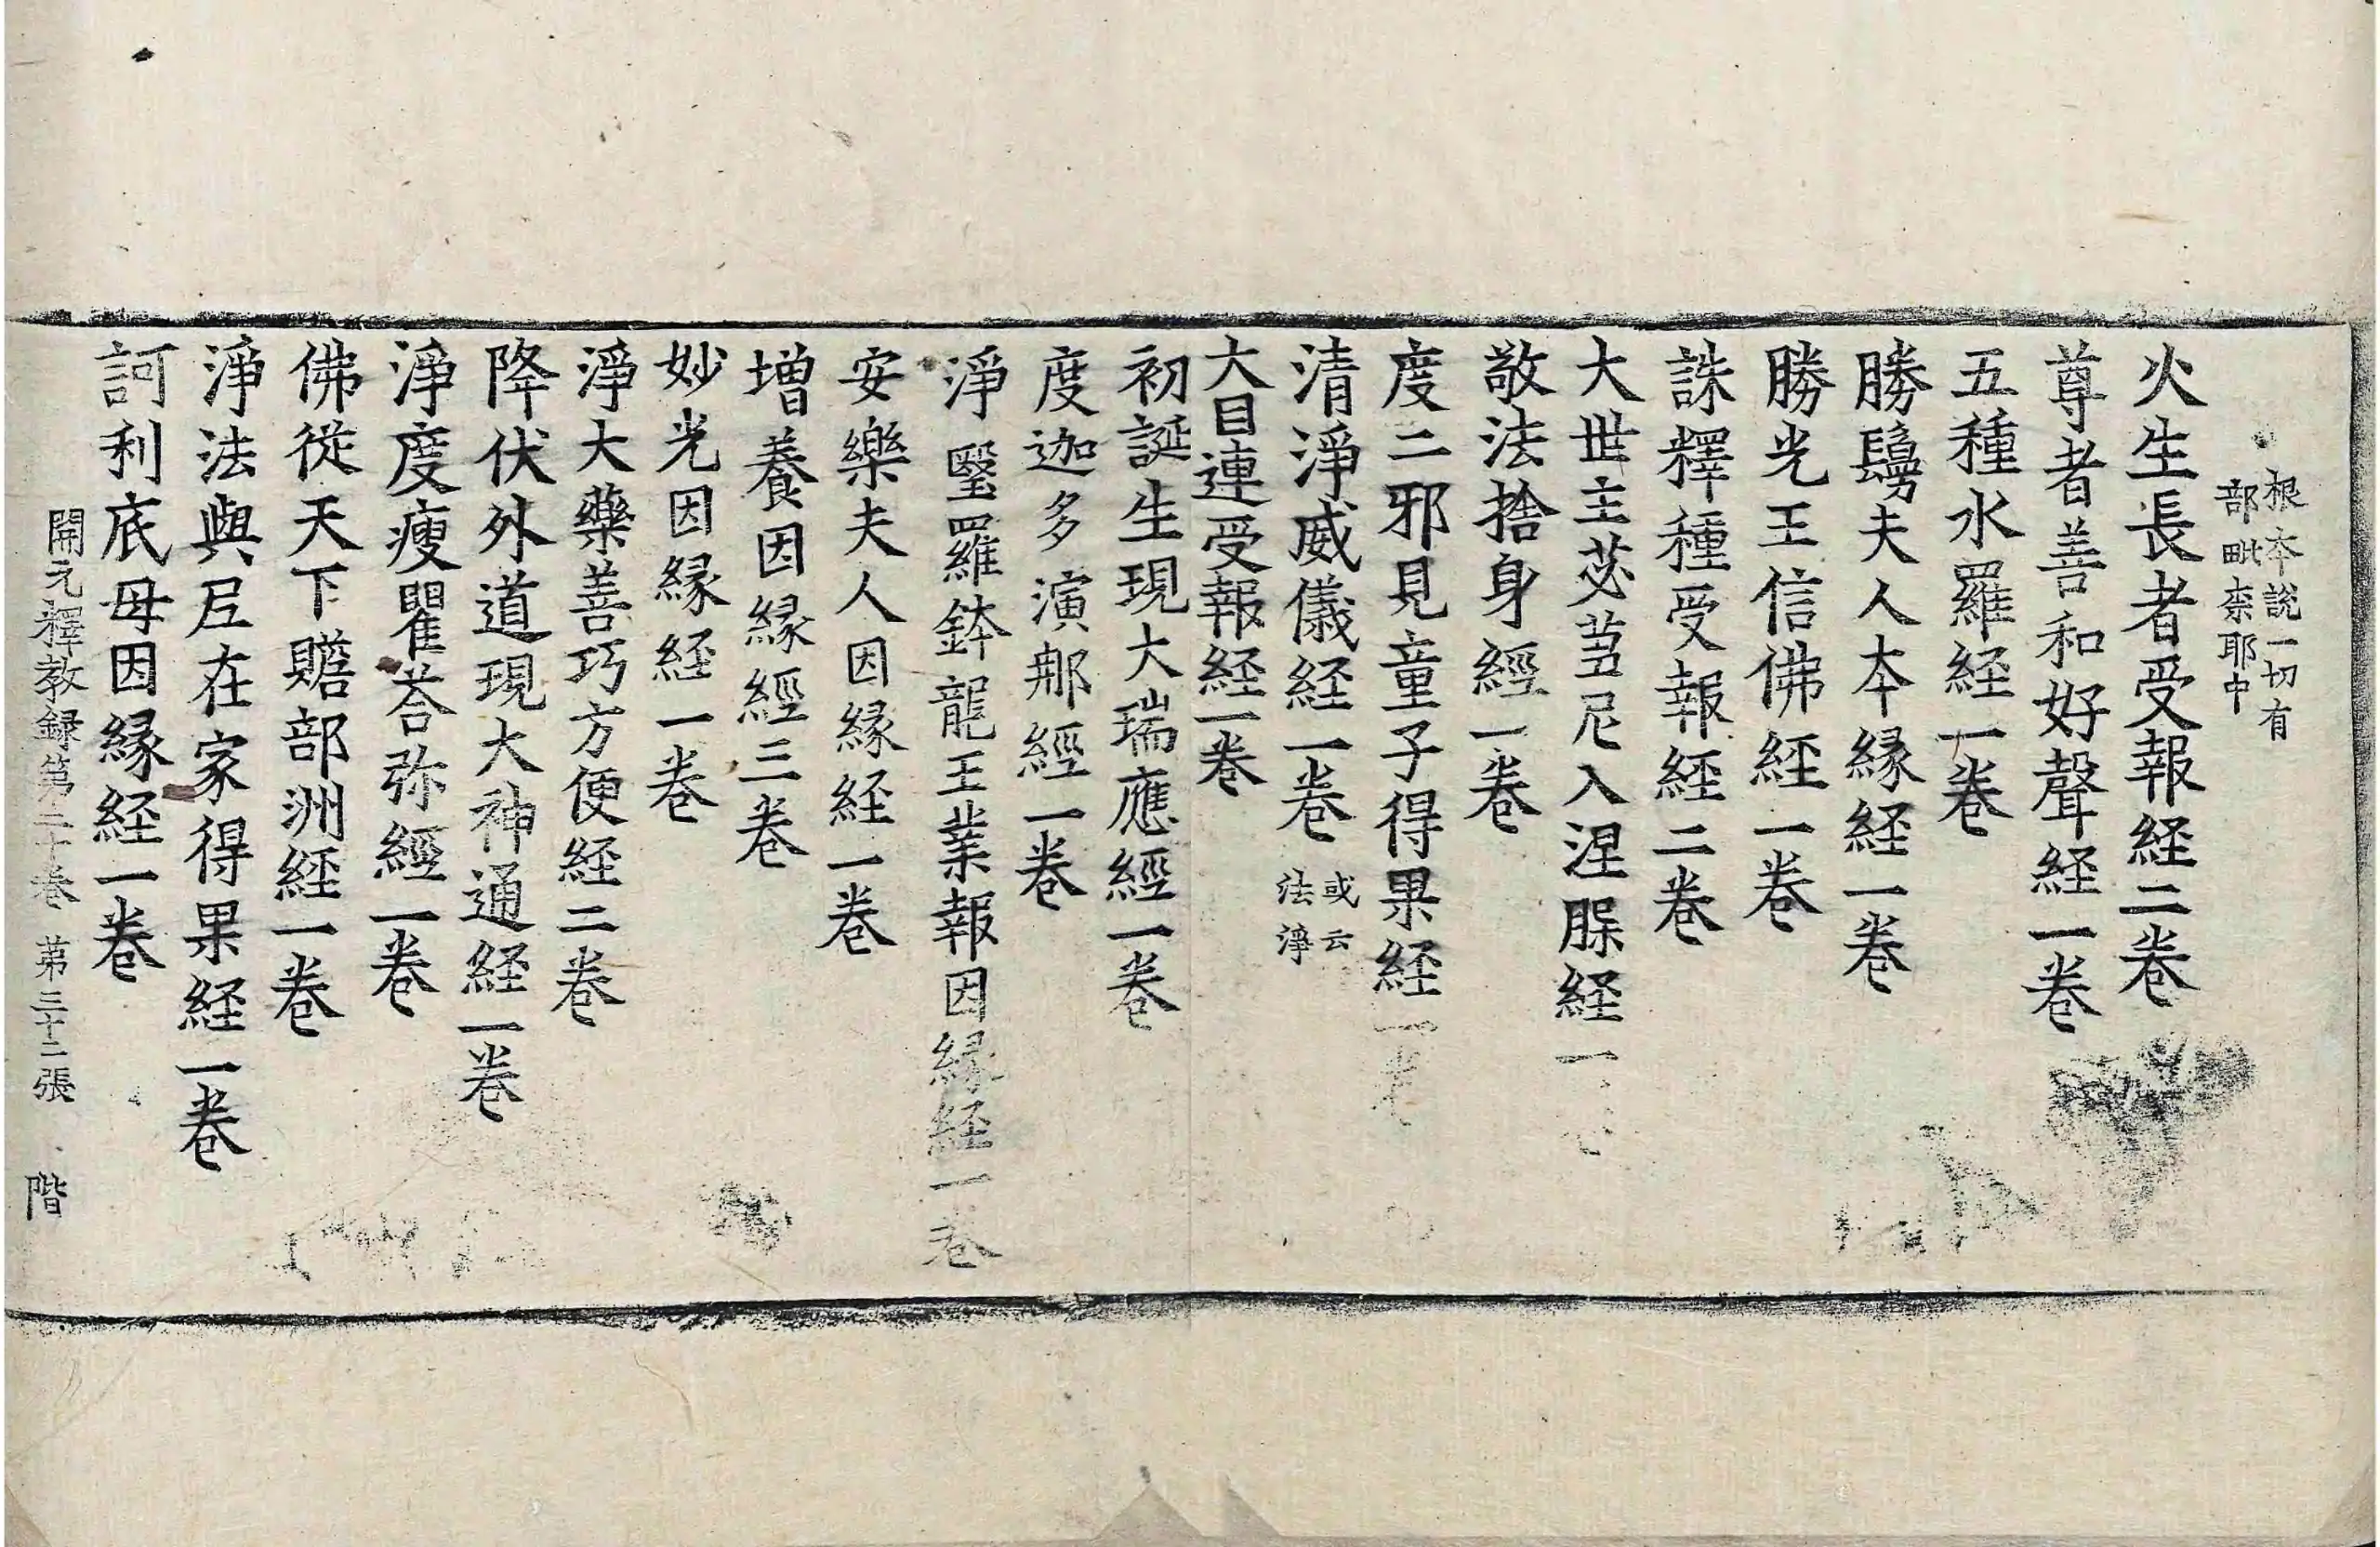 根本說一切有
部毗柰耶中
火生長者受報経二卷
尊者善和好聲経一卷
五種水羅経一卷
勝鬘夫人本緣経一卷
勝光王信佛経一卷
誅釋種受報経二卷
大世主苾芻尼入涅槃経一卷
敬法捨身經一卷
度二邪見童子得果経一卷
清淨威儀経一卷 或云
法淨
大目連受報経一卷
初誕生現大瑞應經一卷
度迦多演那經一卷
淨毉羅鉢龍王業報因緣経一卷
安樂夫人因緣経一卷
增養因緣經三卷
妙光因緣経一卷
淨大藥善巧方便経二卷
降伏外道現大神通経一卷
淨度瘦瞿荅弥經一卷
佛從天下贍部洲経一卷
淨法與尼在家得果経一卷
訶利底母因緣経一卷
開元釋教録第二十卷 苐三十二張 階